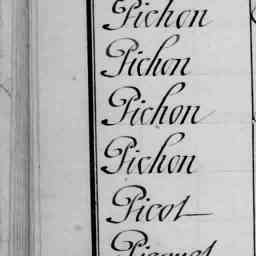 Pichon
Pichon
Pichon
Pichon
Picot